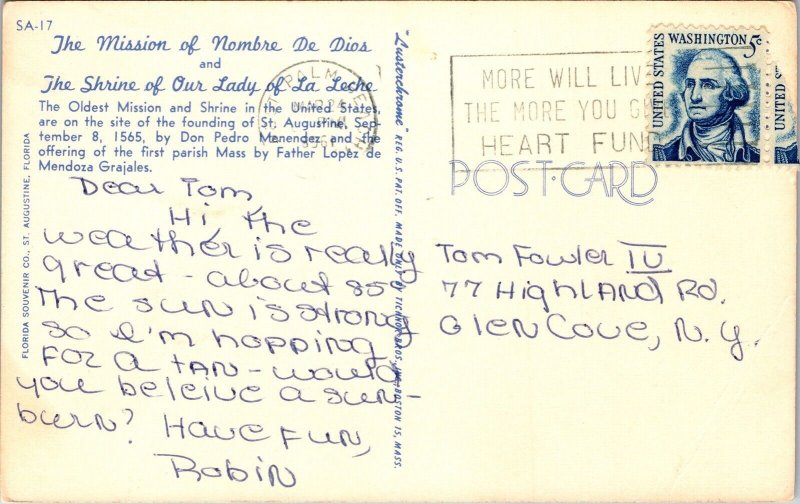 SA-17
The Mission of Nombre De Dios
and
The Shrine of Our Lady of La Leche
The Oldest Mission and Shrine in the United States,
are on the site of the founding of St. Augustine, Sep-
tember 8, 1565, by Don Pedro Menendez and the
offering of the first parish Mass by Father Lopez de
Mendoza Grajales.
FLORIDA SOUVENIR CO., ST. AUGUSTINE, FLORIDA
Dear Tom,
Hi, the
weather is really
great - about 85°
The sun is strong
so I'm hopping
FOR a tan - would
you beleive a sun-
burn? Have Fun,
Robin
"Lusterchrome" REG. U.S. PAT. OFF. MADE ONLY BY TICHNOR BROS., INC., BOSTON 15, MASS.
PALM BEACH
MORE WILL LIV
THE MORE YOU G
HEART FUN
UNITED STATES
WASHINGTON 5c
UNITED ST
POST CARD
Tom Fowler IV
77 Highland RD.
Glen Cove, N.Y.